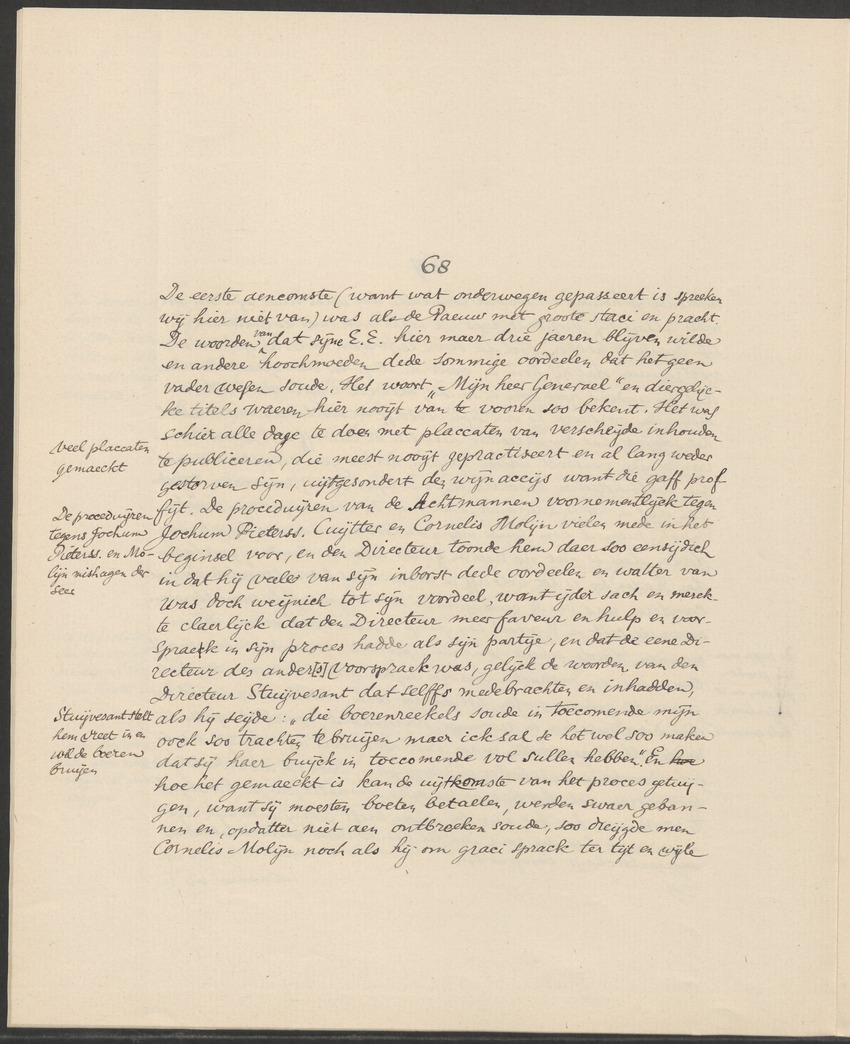 68
De eerste aencomste (want wat onderwegen gepasseert is spreeken
wij hier niet van) was als de Paeuw met groote staci en pracht.
De woorden van dat sijne E.E. hier maer drie jaeren blijven wilde
en andere hoochmoeden dede sommige oordeelen dat het geen
vader wesen soude. Het woort „Mijn heer Generael" en diergelije-
ke titels waeren hier nooijt van te vooren soo bekent. Het was
schier alle dage te doen met placcaten van verscheijde inhouden
te publiceren, die meest nooijt gepractiseert en al lang weder
gestorven sijn, uijtgesondert den wijnaccijs want die gaff prof
fijt. De proceduijren van de Achtmannen voornementlijck tegen
Jochum Pieterss. Cuijtter en Cornelis Molijn vielen mede in het
beginsel voor, en den Directeur toonde hem daer soo eensijdich
in dat hij vales van sijn inborst dede oordeelen en watter van
was doch weijnich tot sijn voordeel, want ijder sach en merck-
te claerlijck dat den Directeur meer faveur en hulp en voor-
spraeck in sijn proces hadde als sijn partije, en dat de eene Di-
recteur des ander[s] voorspraek was, gelijck de woorden van den
Directeur Stuijvesant dat selffs medebrachten en inhadden,
als hij seijde: „die boerenreekels soude in toecomende mijn
oock soo trachten te bruijen maer ick sal se het wel soo maken
dat sij haer buijck in toccomende vol sullen hebben". En hoe
hoe het gemaeckt is kan de uijtkomste van het proces getuij-
gen, want sij moesten boeten betaelen, werden swaer geban-
nen en, opdatter niet aen ontbreeken soude, soo dreijgde men
Cornelis Molijn noch als hij om graci sprack ter tijt en wijle
veel placcaten
gemaeckt
De proceduijren
tegens Jochum
Pieterss. en Mo-
lijn mishagen der
seer
Stuijvesant stelt
hem in en
wil de boeren
bruijen